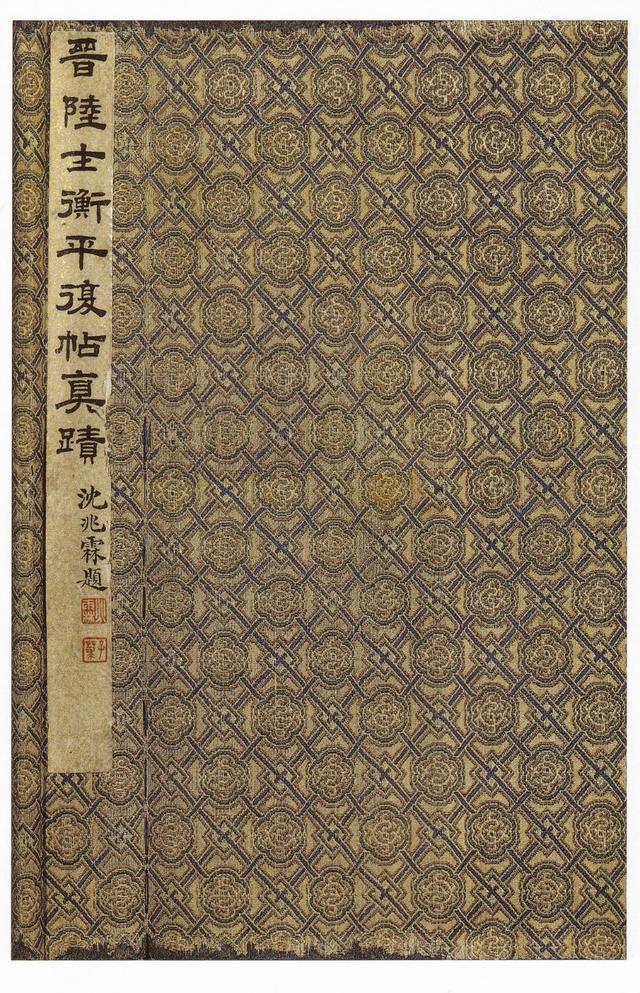 晉陸士衡平復帖真蹟
沈兆霖題